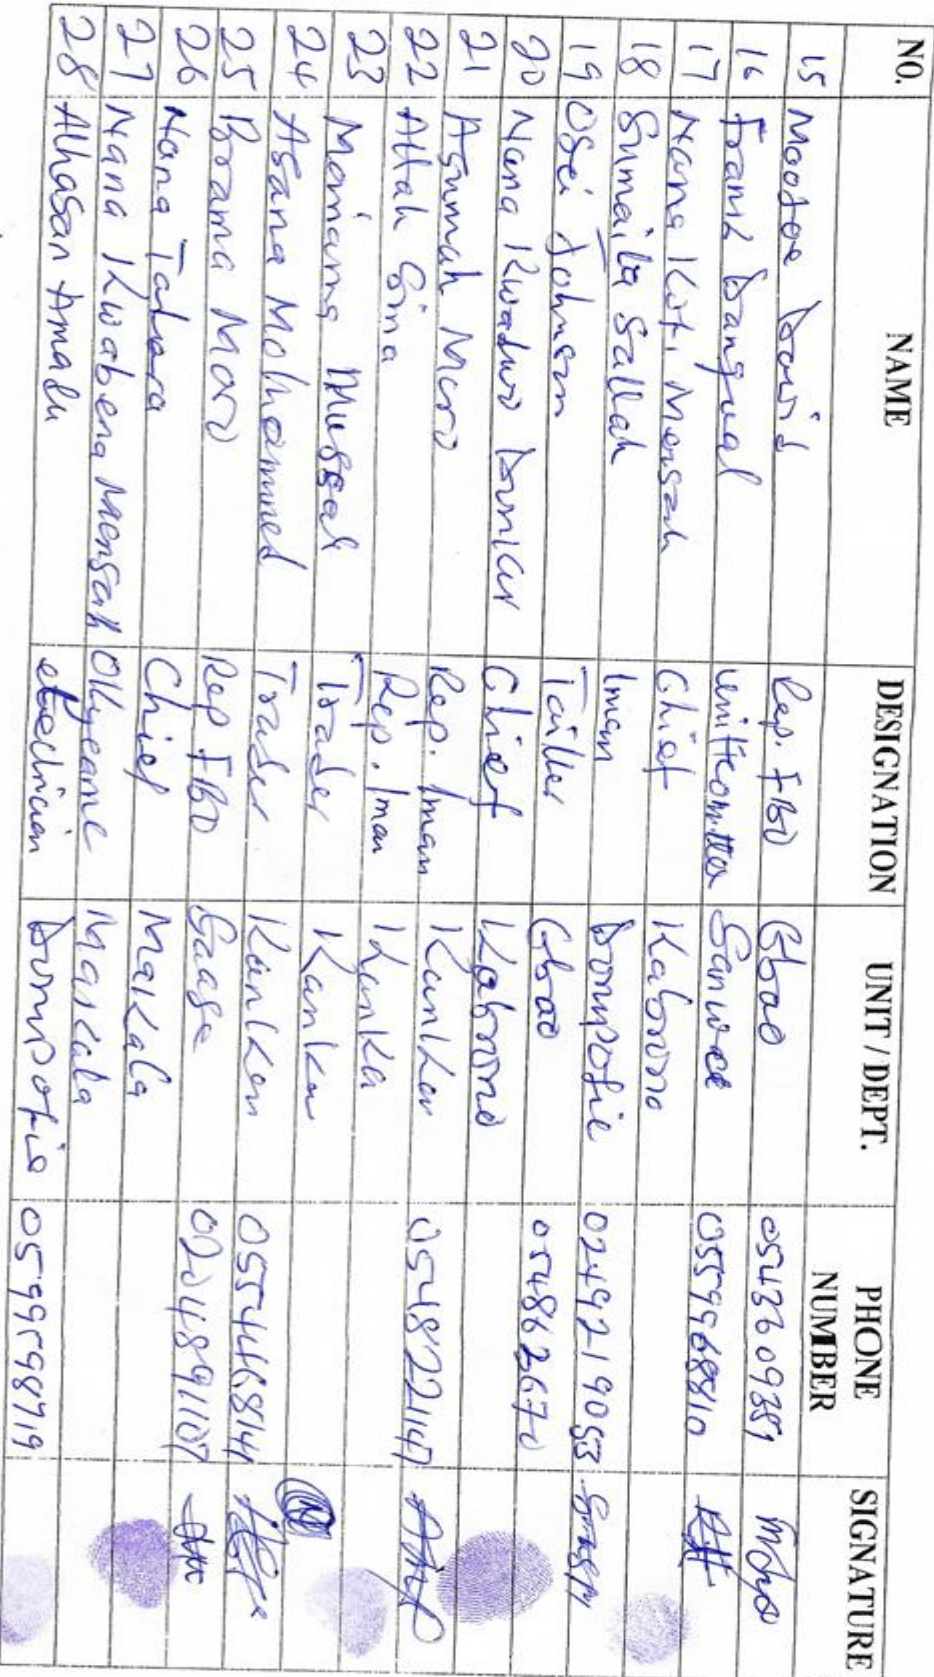 NO. NAME DESIGNATION UNIT / DEPT. PHONE NUMBER SIGNATURE
15 David Rep. FBO Gbao 0543609389
16 Frank Dangual Sanwee 0559968810
17 Nana Kofi Mensah Chief Kabrono
18 Sumaila Sallah Imam Dompofie 0249219053
19 Osei Johnson Tailler Gbao 054862670
20 Nana Kwadwo Chief Kabrono
21 Asumah Moro Rep. Imam Kankan 0548221147
22 Attah Sina Rep. Iman Kanka
23 Trader Kankan
24 Asana Mohammed Trader Kankan 0554468141
25 Brama Moro Rep FBO Saase
26 Nana Chief Makala
27 Nana Kwabena Mensah Okyeame Makala
28 Alhasan Amadu electrician Dompofie